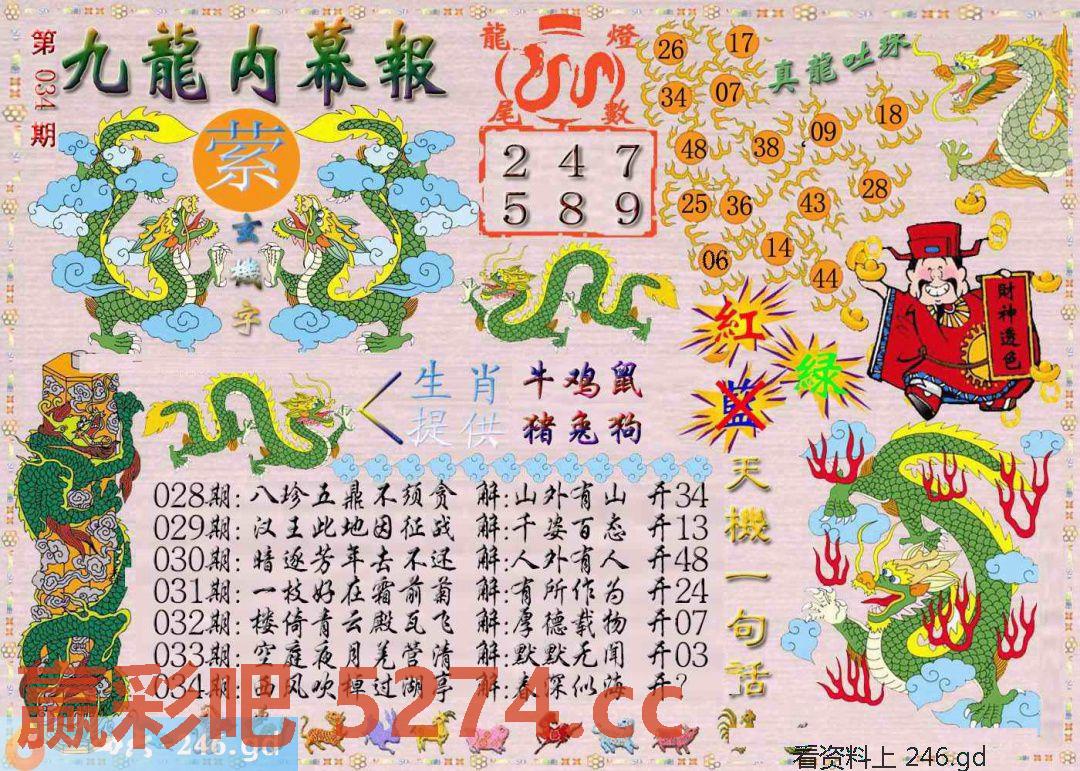 第034期
九龍内幕報
萦
玄機字
龍燈
尾數
2 4 7
5 8 9
真龍吐珠
26
17
34
07
18
09
48
38
28
25
36
43
14
06
44
財神透色
紅
藍
绿
生肖
提供
牛鸡鼠
猪兔狗
天機一句話
028期:八珍五鼎不须贪 解:山外有山 开34
029期:汉王此地因征战 解:千姿百态 开13
030期:暗逐芳年去不还 解:人外有人 开48
031期:一枝好在霜前菊 解:有所作为 开24
032期:楼倚青云殿瓦飞 解:厚德载物 开07
033期:空庭夜月羌管清 解:默默无闻 开03
034期:西风吹棹过湖亭 解:春深似海 开?
赢彩吧 5274.cc
246.gd
看资料上 246.gd